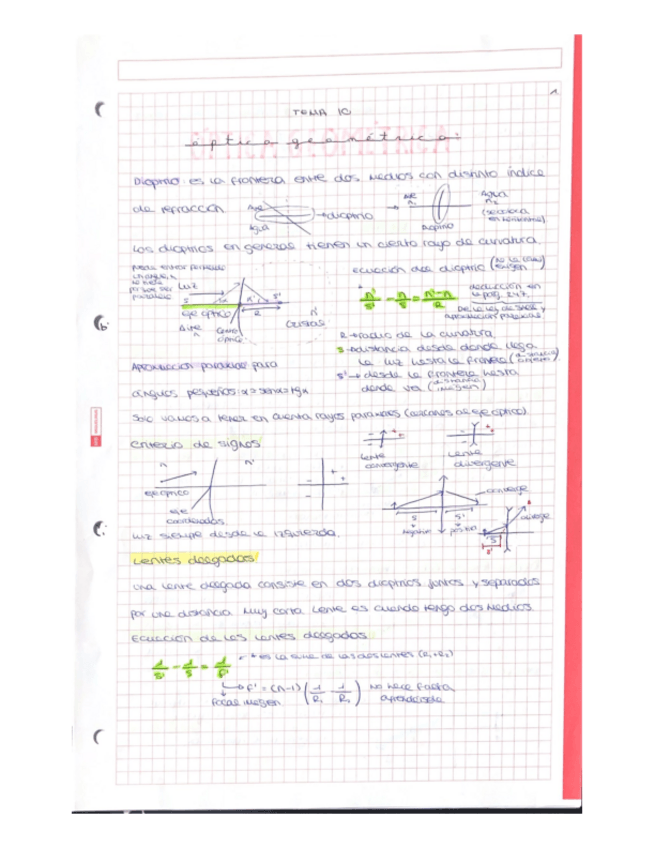 1
TEMA 10
óptica geométrica:
Dioptrio es la frontera entre dos medios con distinto índice
de refracción
Aire
Agua
→ dioptrio
Aire
n₁
Dioptrio
Agua
n₂
Los dioptrios en general tienen un cierto rayo de curvatura.
Luz
s
α
s'
R
eje óptico
Aire
n
Centro
óptico
n'
Cristal
ecuación del dioptrio
n'/s' - n/s = n'-n/R
deducción en
la pág. 247,
De la ley de Snell y
Aproximación paraxial
R → radio de la curvatura
s → distancia desde donde llega
la luz hasta la frontera (distancia objeto)
s' → desde la frontera hasta
donde va (distancia imagen)
Aproximación paraxial para
ángulos pequeños: α ≈ senα ≈ tgα
Solo vamos a tener en cuenta rayos paraxiales (cercanos al eje óptico)
Criterio de signos
n
n'
eje óptico
eje
coordenadas
Lente
convergente
Lente
divergente
converge
s
s'
negativo
positivo
diverge
s
s'
Luz siempre desde la izquierda.
Lentes delgadas
Una lente delgada consiste en dos dioptrios juntos y separados
por una distancia muy corta. Lente es cuando tengo dos medios.
Ecuación de las lentes delgadas
1/s' - 1/s = 1/f'
f' = (n-1) (1/R₁ 1/R₂) no hace falta
aprendérsela
Focal imagen